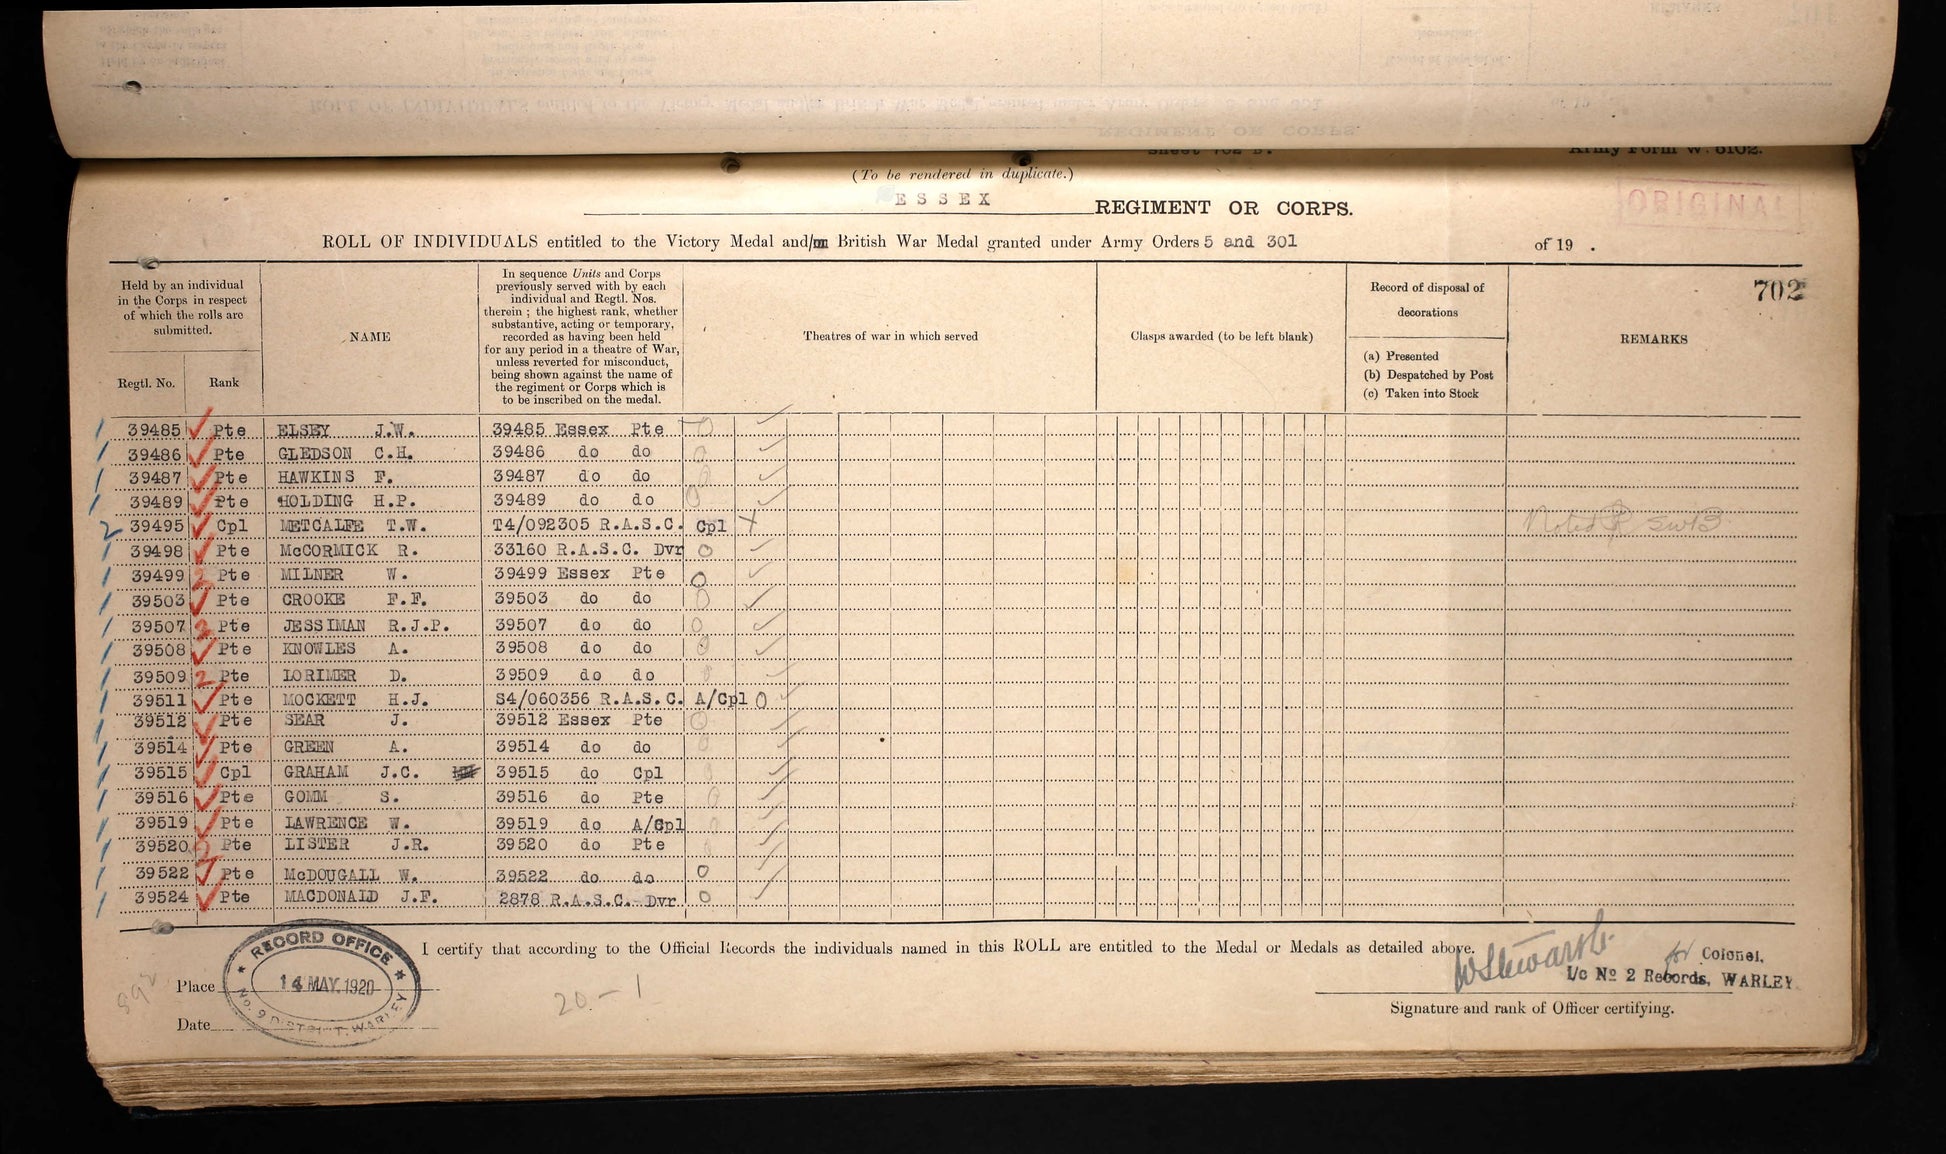 Sheet 702 B.
Army Form W. 5102.
(To be rendered in duplicate.)
ORIGINAL
ESSEX REGIMENT OR CORPS.
ROLL OF INDIVIDUALS entitled to the Victory Medal and/ British War Medal granted under Army Orders 5 and 301 of 19 .
702
Held by an individual in the Corps in respect of which the rolls are submitted.
Regtl. No.
Rank
NAME
In sequence Units and Corps previously served with by each individual and Regtl. Nos. therein ; the highest rank, whether substantive, acting or temporary, recorded as having been held for any period in a theatre of War, unless reverted for misconduct, being shown against the name of the regiment or Corps which is to be inscribed on the medal.
Theatres of war in which served
Clasps awarded (to be left blank)
Record of disposal of decorations
(a) Presented
(b) Despatched by Post
(c) Taken into Stock
REMARKS
1 39485 Pte ELSEY J.W. 39485 Essex Pte
1 39486 Pte GLEDSON C.H. 39486 do do
1 39487 Pte HAWKINS F. 39487 do do
1 39489 Pte HOLDING H.P. 39489 do do
2 39495 Cpl METCALFE T.W. T4/092305 R.A.S.C. Cpl X Noted
1 39498 Pte McCORMICK R. 33160 R.A.S.C. Dvr O
1 39499 2 Pte MILNER W. 39499 Essex Pte O
1 39503 Pte CROOKE F.F. 39503 do do O
1 39507 2 Pte JESSIMAN R.J.P. 39507 do do O
1 39508 Pte KNOWLES A. 39508 do do
1 39509 2 Pte LORIMER D. 39509 do do
1 39511 Pte MOCKETT H.J. S4/060356 R.A.S.C. A/Cpl O
1 39512 Pte SEAR J. 39512 Essex Pte
1 39514 Pte GREEN A. 39514 do do
1 39515 Cpl GRAHAM J.C. 39515 do Cpl
1 39516 Pte GOMM S. 39516 do Pte
1 39519 Pte LAWRENCE W. 39519 do A/Cpl
1 39520 2 Pte LISTER J.R. 39520 do Pte
1 39522 Pte McDOUGALL W. 39522 do do O
1 39524 Pte MACDONALD J.F. 2878 R.A.S.C. Dvr O
I certify that according to the Official Records the individuals named in this ROLL are entitled to the Medal or Medals as detailed above.
RECORD OFFICE
14 MAY 1920
No. 9 DISTRICT. WARLEY
Place
Date
20 - 1
for Colonel,
I/c No 2 Records, WARLEY.
Signature and rank of Officer certifying.